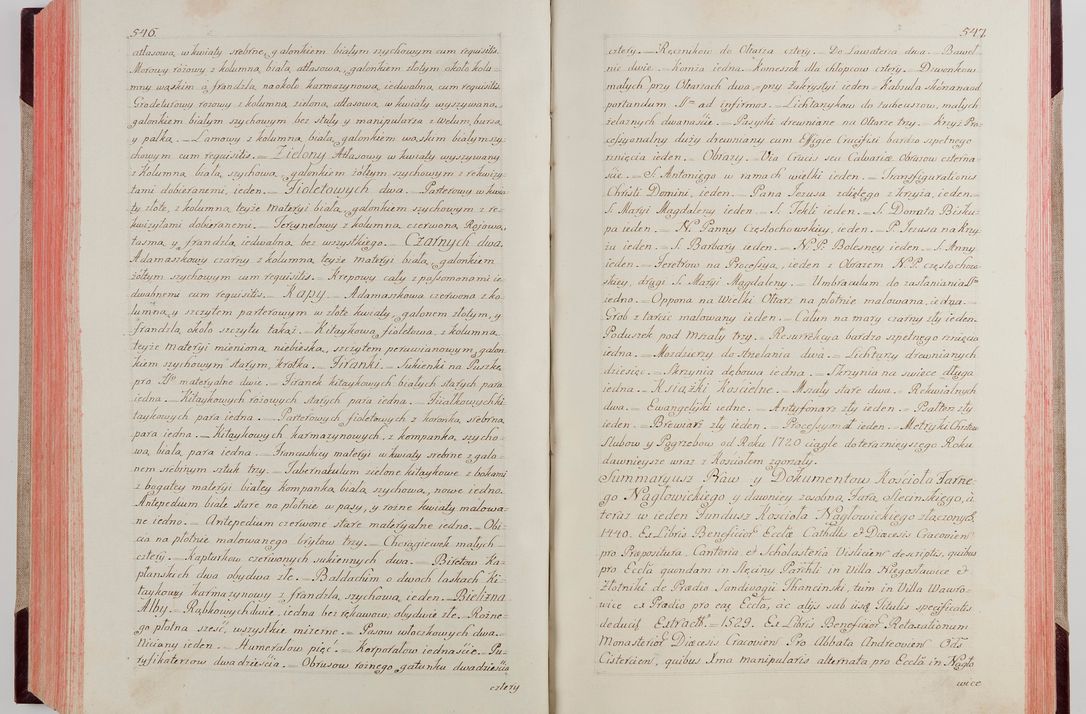 546.
atłasową w kwiaty srebrne, galonkiem białym szychowym cum requisitis.
Morowy różowy z kolumną białą atłasową, galonkiem złotym około kolu=
mny wąskim a frandzlą naokoło karmazynową iedwalną, cum requisitis.
Grodetutowy rożowy z kolumną zieloną atłasową w kwiaty wyszywaną,
galonkiem białym szychowym bez stuły y manipularza z welum, bursą,
y palką. — Lamowy z kolumną białą galonkiem wąskim białym szy=
chowym cum requisitis. — Zielony Atłasowy w kwiaty wyszywany
z kolumną białą szychową, galonkiem żółtym szychowym z rekwizy=
tami dobieranemi, ieden. — Fioletowych dwa. — Parterowy w kwia=
ty złote, z kolumną teyże materyi białą, galonkiem szychowym z re=
kwizytami dobieranemi. — Tercynelowy z kolumną czerwoną Rypsową,
tasmą y frandzlą iedwalną bez wszystkiego. — Czarnych dwa.
Adamaszkowy czarny z kolumną teyże materyi białą, galonkiem
żółtym szychowym cum requisitis. — Krepowy cały z passomanami ie=
dwabnemi cum requisitis. — Kapy. — Adamaszkowa czerwona z ko=
lumną y szczytem parterowym w złote kwiaty, galonem złotym, y
frandzlą około szczytu takąż. — Kitaykowa fioletowa, z kolumną
teyże materyi mienioną niebieską, szczytem peruwianowym, galon=
kiem szychowym starym, krótka. — Firanki. — Sukienki na Puszkę
pro SSmo materyalne dwie. — Firanek kitaykowych białych starych para
iedna. — Kitaykowych rożowych starych para iedna. — Fiałkowych ki=
taykowych para iedna. — Parterowych fioletowych z koronką srebrną
para iedna. — Kitaykowych karmazynowych, z kompanką szycho=
wą białą para iedna. — Francuskiey materyi w kwiaty srebrne z galo=
nem srebrnym sztuk trzy. — Tabernakulum zielone kitaykowe z bokami
z bogatey materyi białey kompanką białą szychową, nowe iedno.
Antepedium białe stare na płotnie w pasy, y rożne kwiaty malowa=
ne iedno. — Antepedium czerwone stare materyalne iedno. — Obi=
cia na płotnie malowanego brytow trzy. — Chorągiewek małych
cztery. — Kapturkow czerwonych sukiennych dwa. — Biretow Ka=
płanskich dwa obydwa złe. — Baldachim o dwoch laskach ki=
taykowy karmazynowy z frandzlą szychową ieden. — Bielizna
Alby. — Rąbkowych dwie, iedna bez rękawow, obydwie złe. — Rożne=
go płotna sześć, wszystkie mizerne. — Pasow włoczkowych dwa. —
Niciany ieden. — Humerałow pięć. — Korporałow iednaście. — Pu=
ryfikaterzow dwadzieścia. — Obrusow rożnego gatunku dwadzieścia
cztery
547.
cztery. — Ręcznikow do Ołtarza cztery. — Do Lawaterza dwa. — Baweł=
nie dwie. — Komża iedna. — Komeszek dla chłopcow cztery. — Dzwonkow
małych przy Ołtarzach dwa, = przy Zakrystyi ieden. — Kabsuła skórzana ad
portandum SSm ad infirmos. — Lichtarzykow do tubeuszow małych
żelaznych dwanaście. — Pasyiki drewniane na Ołtarze trzy. — Krzyż Pro=
cessyonalny duży drewniany cum Effigie Crucifixi bardzo szpetnego
rznięcia ieden. — Obrazy. — Via Crucis seu Calvariæ Obrazow czterna=
ście. — S. Antoniego w ramach wielki ieden. — Transfigurationis
Christi Domini, ieden. — Pana Jezusa zdiętego z krzyża, ieden. —
S. Maryi Magdaleny ieden. — S. Tekli ieden. — S. Donata Bisku=
pa ieden. — N. Panny Częstochowskiey, ieden. — P. Jezusa na Krzy=
żu ieden. — S. Barbary ieden. — N. P. Bolesney ieden. — S. Anny
ieden. — Feretrow na Processyą, ieden z Obrazem N. P. częstochow=
skiey, drugi S. Maryi Magdaleny. — Umbraculum do zasłaniania SSm
iedno. — Oppona na Wielki Ołtarz na płotnie malowana, iedna. —
Grob z tarcic malowany ieden. — Całun na mary czarny zły ieden.
Poduszek pod Mszały trzy. — Resurrekcya bardzo szpetnego rznięcia
iedna. — Mozdzierzy do strzelania dwa. — Lichtarzy drewnianych
dziesięć. — Skrzynia dębowa iedna. — Skrzynia na swiece długa
iedna. — Książki Kościelne. — Mszały stare dwa. — Rekwialnych
dwa. — Ewangeliyki iedne. — Antyfonarz zły ieden. — Psałterz zły
ieden. — Brewiarz zły ieden. — Processyonał ieden. — Metryki Chrztow
Slubow y Pogrzebow od Roku 1720 ciągle do terazniejszego Roku
dawnieysze wraz z Kościołem zgorzały.
Summaryusz Praw y Dokumentow Kościoła Farne=
go Nagłowickiego y dawniey zwolną Farą Slecinskiego, a
teraz w ieden Fundusz Kościoła Nagłowickiego złączonych.
1440. Ex Libris Beneficior Eccłæ Cathdlis et Diæcesis Cracovien
pro Præpositura, Cantoria et Scholasteria Visliciem descriptis, quibus
pro Eccłâ quondam in Slęciny Parchli in Villa Niegosławice et
Złotniki de Prædio Sandivogii Thancinski, tum in Villa Wawro=
wice ex Prædio pro eaq Eccła, ac alijs sub usq Titulis specificatis
deducit Extractt. — 1529. Ex Libris Beneficior Retaxationum
Monasterior Diæcesis Cracovien Pro Abbate Andreovien Ord.
Cistercien, quibus Xma manipularis alternata pro Eccłâ in Nagło
wice